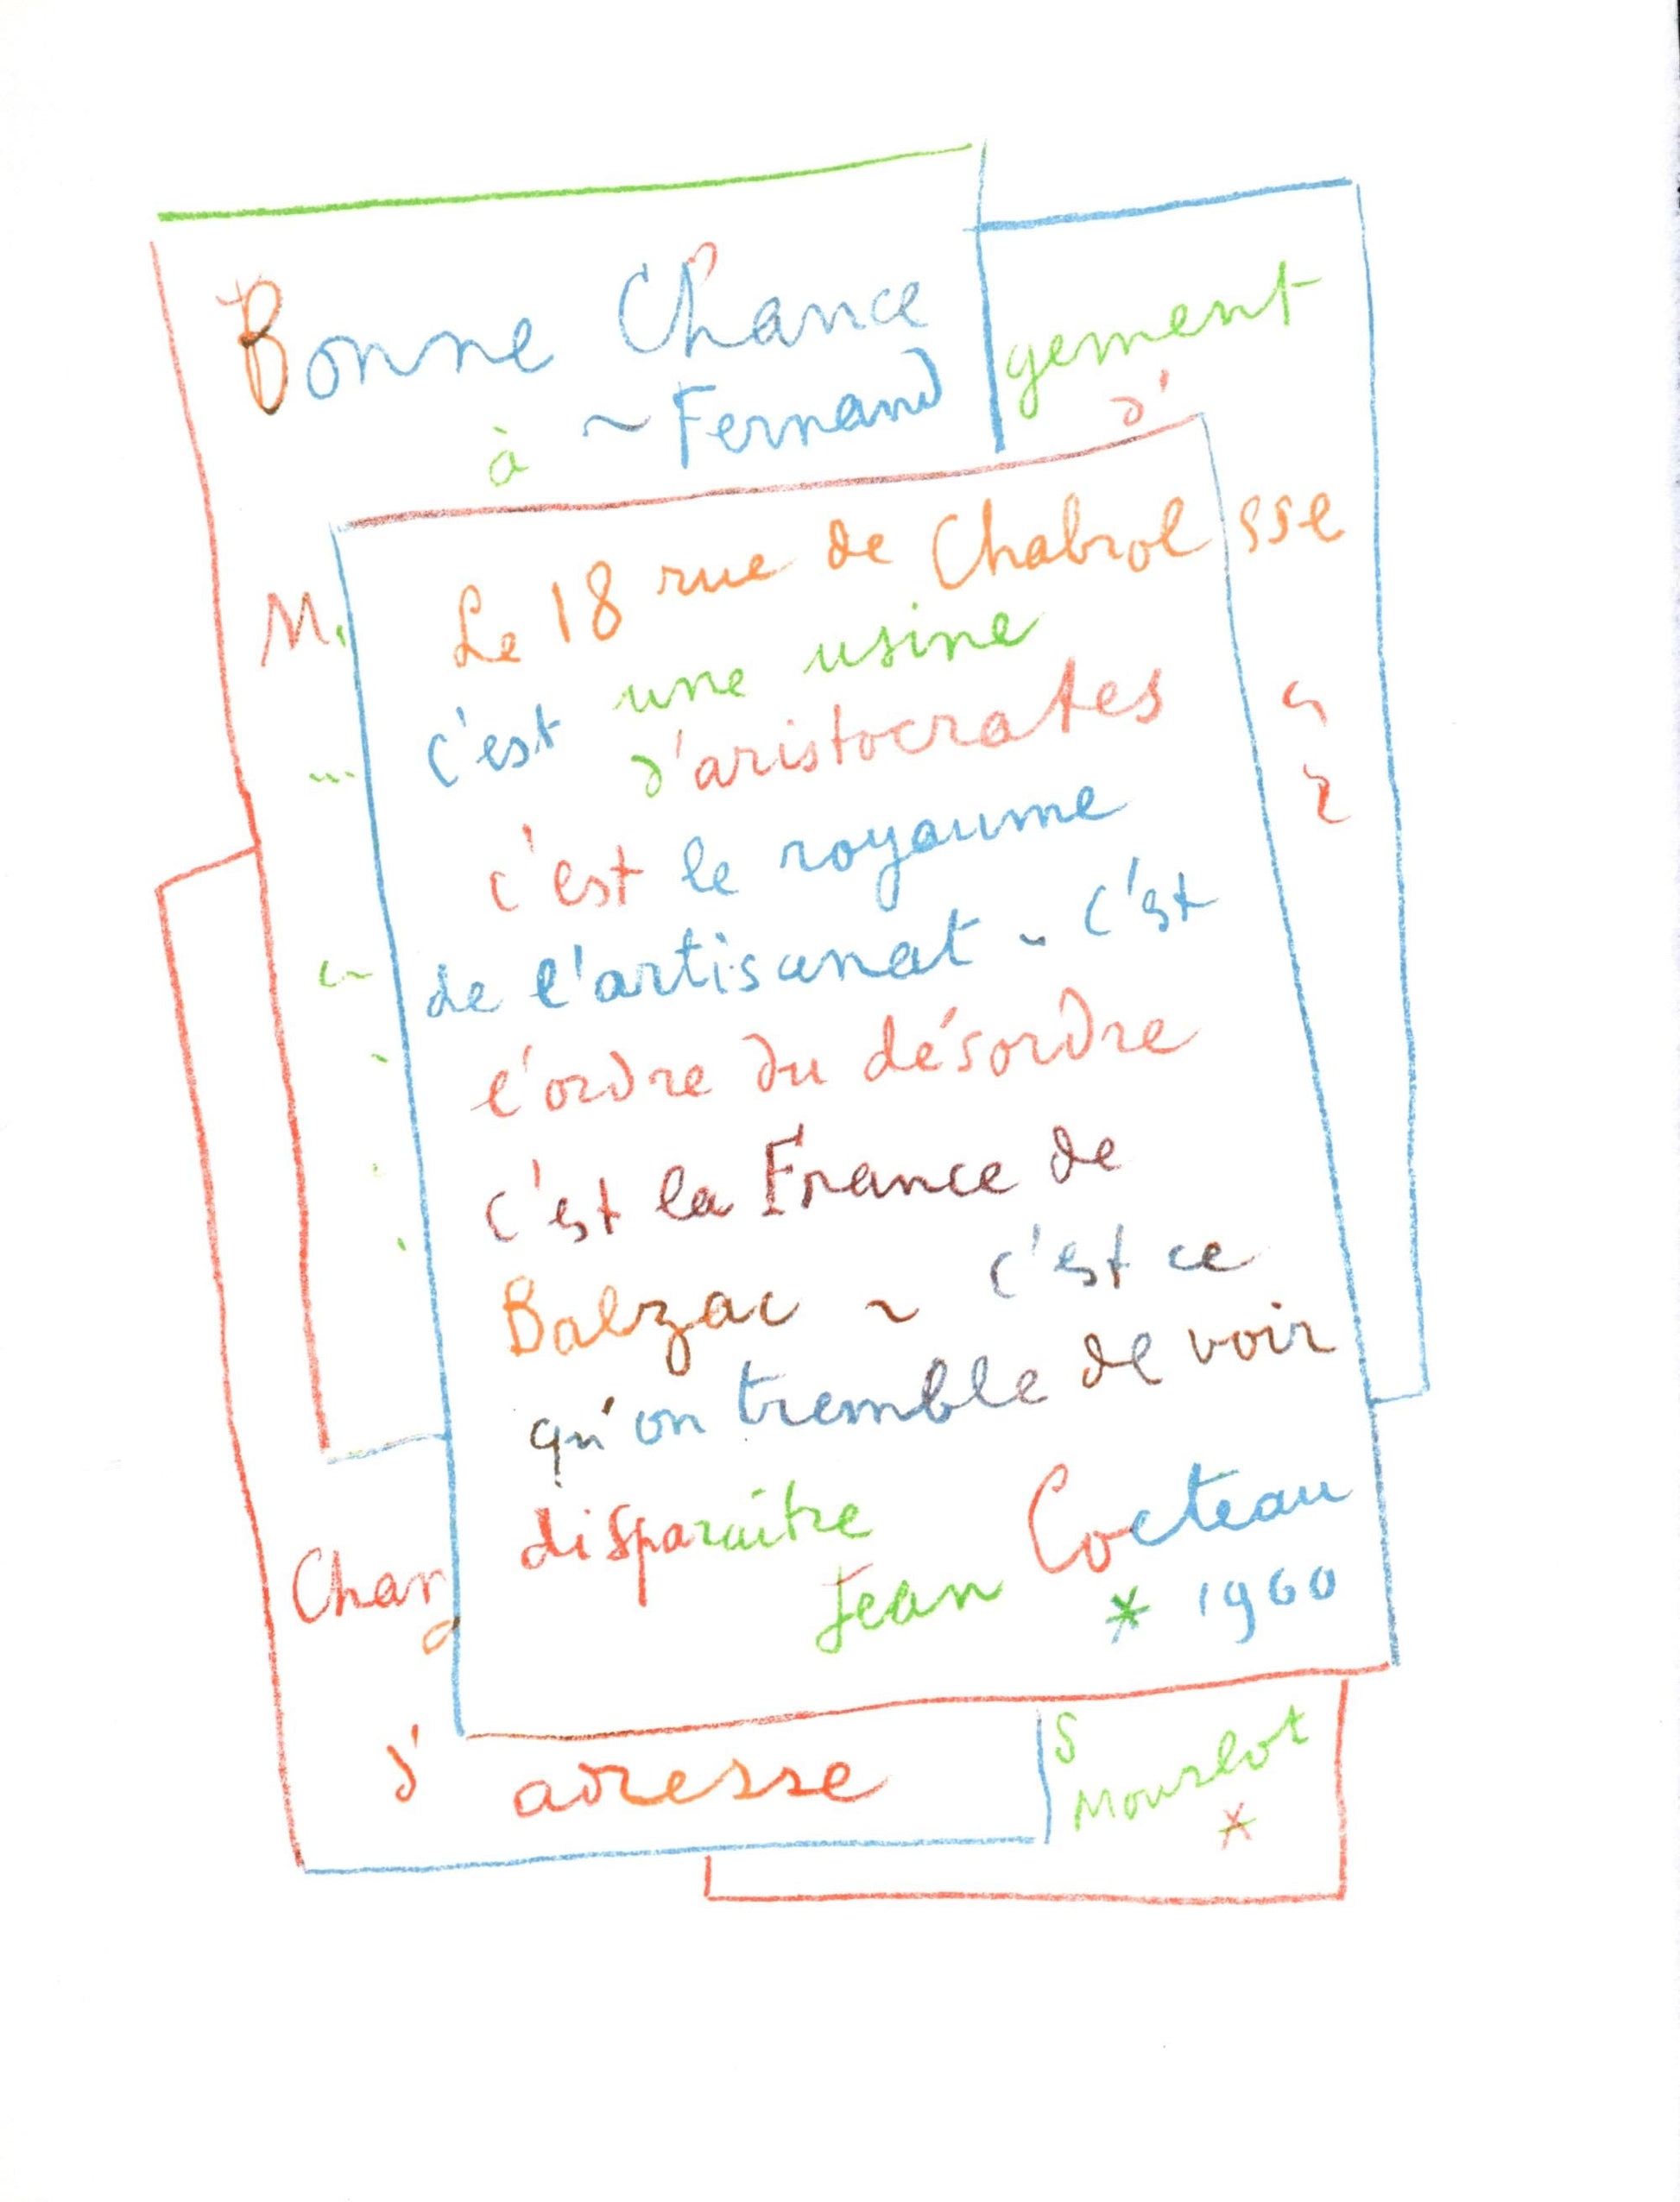 Bonne Chance
à ~ Fernand
gement
d'
sse
M
Le 18 rue de Chabrol
c'est une usine
d'aristocrates
c'est le royaume
de l'artisanat ~ c'est
l'ordre du désordre
c'est la France de
Balzac ~ c'est ce
qu'on tremble de voir
disparaître
Jean Cocteau
* 1960
Chan
g
d' adresse
s
Mourlot
*